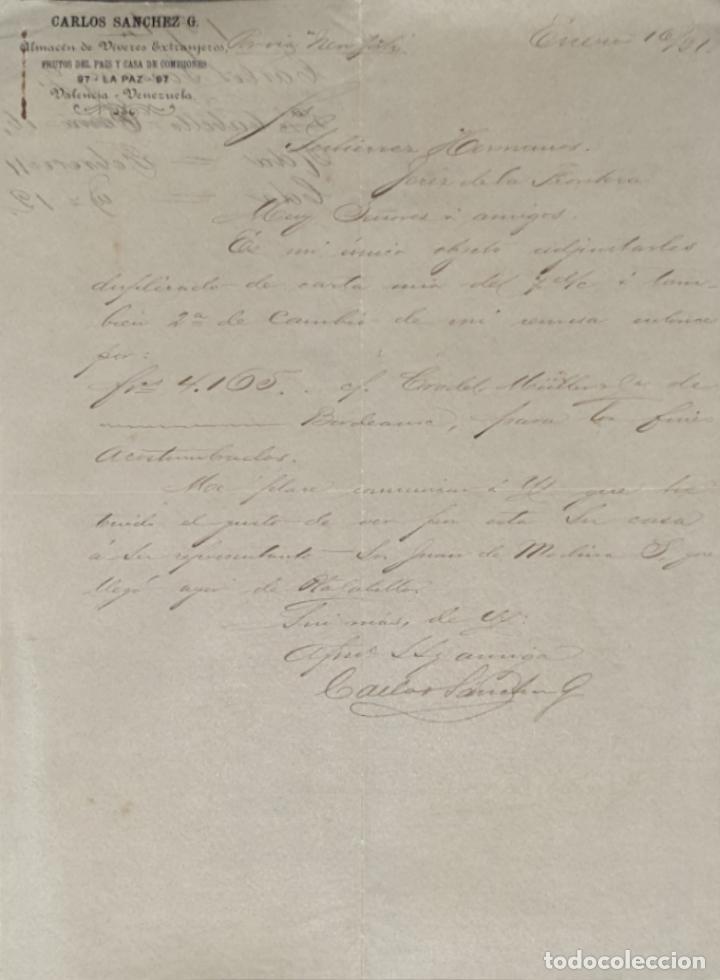 CARLOS SANCHEZ G.
Almacén de Víveres Extranjeros,
FRUTOS DEL PAIS Y CASA DE COMISIONES
97 - LA PAZ - 97
Valencia - Venezuela
Enero 16/91.
Gutiérrez Hermanos.
Jerez de la Frontera
Muy Señores i amigos.
Es mi único objeto adjuntarles
duplicado de carta mia del 7 i tam-
bien 2ª de Cambio de mi remesa entonces
por:
frs 4.165. de
Bordeaux, para los fines
Acostumbrados.
Me place comunicar á Uds que he
tenido el gusto de ver por esta Su casa
á Su representante Sor Juan de S. que
llegó ayer de Pto Cabello.
Sin más, de Uds
amigo
Carlos Sánchez G
todocoleccion